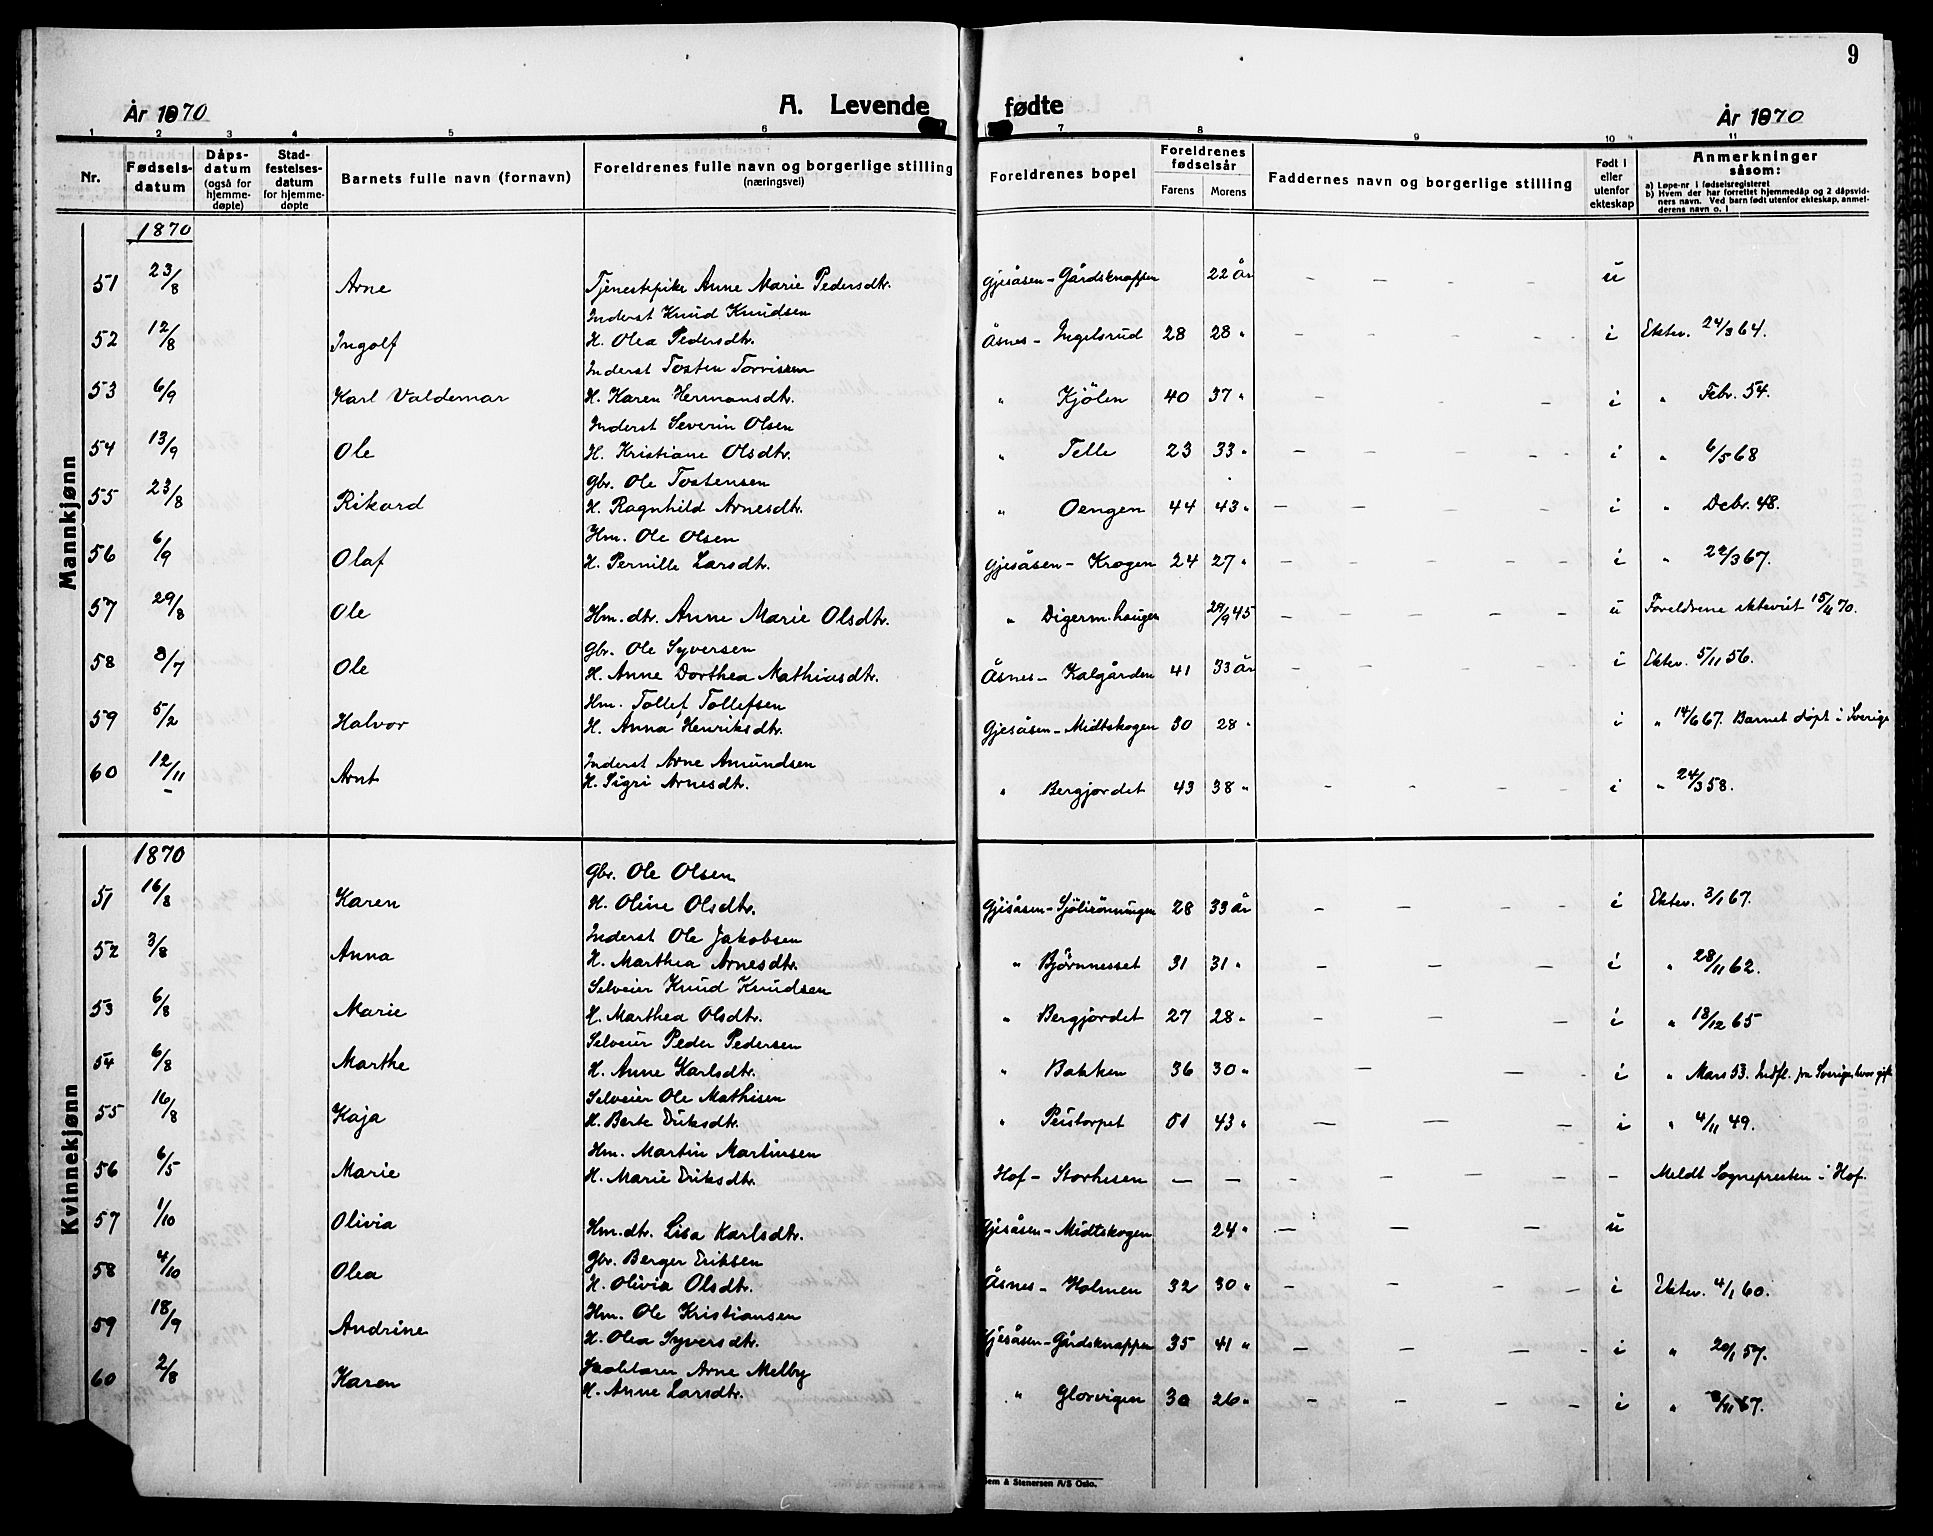 9
År 1870 A. Levende fødte År 1870
1 2 3 4 5 6 7 8 9 10 11
Nr. Fødsels-datum Dåps-datum (også for hjemme-døpte) Stad-festelses-datum for hjemme-døpte Barnets fulle navn (fornavn) Foreldrenes fulle navn og borgerlige stilling (næringsvei) Foreldrenes bopel Foreldrenes fødselsår Farens Morens Faddernes navn og borgerlige stilling Født i eller utenfor ekteskap Anmerkninger såsom: a) Løpe-nr i fødselsregisteret b) Hvem der har forrettet hjemmedåp og 2 dåpsvidners navn. Ved barn født utenfor ekteskap, anmelderens navn o. l
Mannkjønn
1870
51 23/8 Arne Tjenestepike Anne Marie Pedersdtr. Gjesåsen - Gårdsknappen 22 år - - - - u
Inderst Knud Knudsen
52 12/8 Ingolf H. Olea Pedersdtr. Åsnes - Ingelsrud 28 28 " - - - - i Ektev. 24/3 64.
Inderst Tosten Torvissen
53 6/9 Karl Valdemar H. Karen Hermansdtr. " Kjölen 40 37 " - - - i " Febr. 54.
Inderst Severin Olsen
54 13/9 Ole H. Kristiane Olsdtr. " Telle 23 33 " - - - - i " 6/5 68
Gbr. Ole Tostensen
55 23/8 Rikard H. Ragnhild Arnesdtr. " Oengen 44 43 " - - - - i " Debr. 48.
Hm. Ole Olsen
56 6/9 Olaf H. Pernille Larsdtr. Gjesåsen - Krogen 24 27 " - - - - i " 22/3 67.
57 29/8 Ole Hm.dtr. Anne Marie Olsdtr. " Digerm.haugen 29/9 45 - - - - u Foreldrene ekteviet 15/11 70.
Gbr. Ole Syversen
58 8/7 Ole H. Anne Dorthea Mathiasdtr. Åsnes - Kalgården 41 33 år - - - - i Ektev. 5/11 56.
Hm. Tollef Tollefsen
59 5/2 Halvor H. Anna Henriksdtr. Gjesåsen - Midtskogen 30 28 " - - - - i " 14/6 67. Barnet døpt i Sverige
Inderst Arne Amundsen
60 12/11 Arnt H. Sigri Arnesdtr. " Bergjordet 43 38 " - - - - i " 24/3 58.
Kvinnekjønn
1870
Gbr. Ole Olsen
51 16/8 Karen H. Oline Olsdtr. Gjesåsen - Sjölirönningen 28 33 år - - - - i Ektev. 3/1 67.
Inderst Ole Jakobsen
52 3/8 Anna H. Marthea Arnesdtr. " Björnnesset 31 31 " - - - - i " 28/11 62.
Selveier Knud Knudsen
53 6/8 Marie H. Marthea Olsdtr. " Bergjordet 27 28 " - - - - i " 18/12 65
Selveier Peder Pedersen
54 6/8 Marthe H. Anne Karlsdtr. " Bakken 36 30 " - - - i " Mars 53. Indfl. fra Sverige, hvor gift
Selveier Ole Mathisen
55 16/8 Kaja H. Berte Eriksdtr. " Peistorpet 01 43 " - - - i " 4/11 49.
Hm. Martin Martinsen
56 6/5 Marie H. Marie Eriksdtr. Hof - Storhesen - - - - - - Meldt Sognepresten i Hof.
57 1/10 Olivia Hm.dtr. Lisa Karlsdtr. Gjesåsen - Midtskogen 24 " - - - - u
Gbr. Berger Eriksen
58 4/10 Olea H. Olivia Olsdtr. Åsnes - Holmen 32 30 " - - - - i Ektev. 4/1 60.
Hm. Ole Kristiansen
59 18/9 Andrine H. Olea Syversdtr. Gjesåsen - Gårdsknappen 35 41 " - - - - i " 20/1 57.
Skolelærer Arne Melby
60 2/8 Karen H. Anne Larsdtr. " Glorvigen 30 26 " - - - - i " 8/11 67.
Sem & Stenersen A/S Oslo.